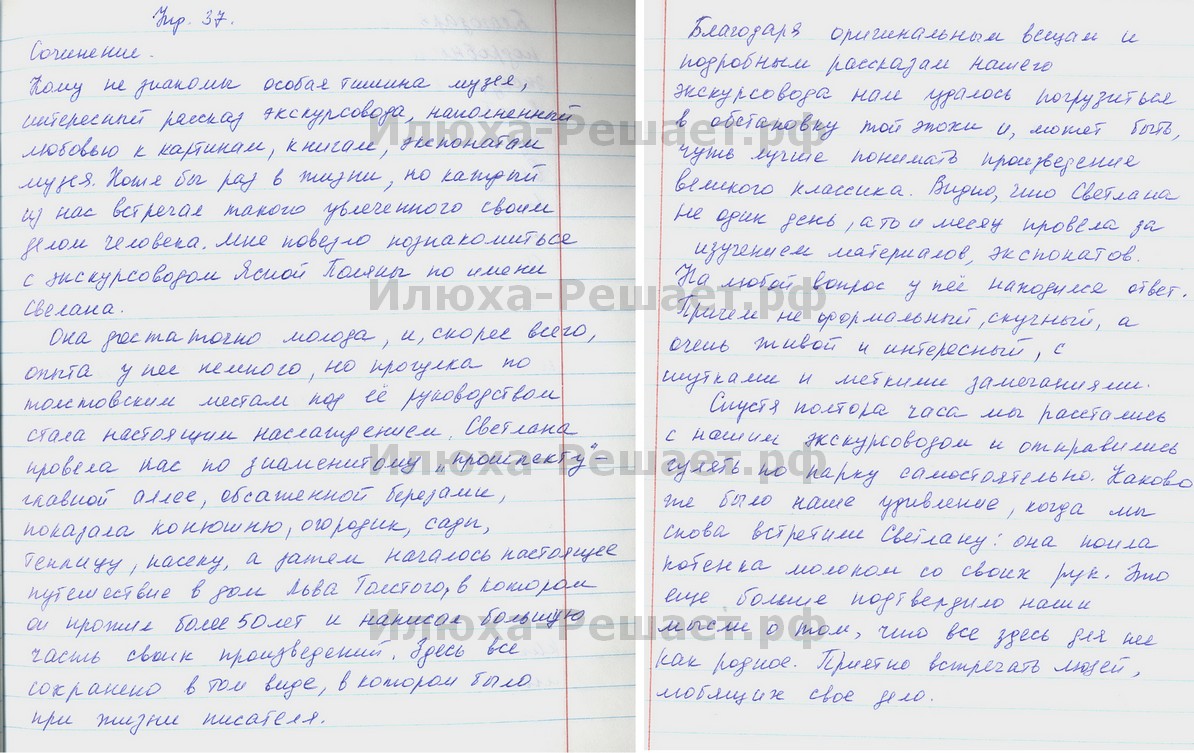 Упр. 37.
Сочинение.
Кому не знакомы особая тишина музея,
интересный рассказ экскурсовода, наполненный
любовью к картинам, книгам, экспонатам
музея. Хотя бы раз в жизни, но каждый
из нас встречал такого увлеченного своим
делом человека. Мне повезло познакомиться
с экскурсоводом Ясной Поляны по имени
Свелана.
Она достаточно молода, и, скорее всего,
опыта у нее немного, но прогулка по
толстовским местам под её руководством
стала настоящим наслаждением. Светлана
провела нас по знаменитому „прошпекту“ –
главной аллее, обсаженной березами,
показала конюшню, огородик, сады,
теплицу, пасеку, а затем началось настоящее
путешествие в дом Льва Толстого, в котором
он прожил более 50 лет и написал большую
часть своих произведений. Здесь все
сохранено в том виде, в котором было
при жизни писателя.
Благодаря оригинальным вещам и
подробным рассказам нашего
экскурсовода нам удалось погрузиться
в обстановку той эпохи и, может быть,
чуть лучше понимать произведение
великого классика. Видно, что Светлана
не один день, а то и месяц провела за
изучением материалов, экспонатов.
На любой вопрос у неё находился ответ.
Причем не формальный, скучный, а
очень живой и интересный, с
шутками и меткими замечаниями.
Спустя полтора часа мы расстались
с нашим экскурсоводом и отправились
гулять по парку самостоятельно. Каково
же было наше удивление, когда мы
снова встретили Светлану: она поила
котенка молоком со своих рук. Это
еще больше подтвердило наши
мысли о том, что все здесь для нее
как родное. Приятно встречать людей,
любящих свое дело.
Илюха-Решает.рф
Илюха-Решает.рф
Илюха-Решает.рф
Илюха-Решает.рф